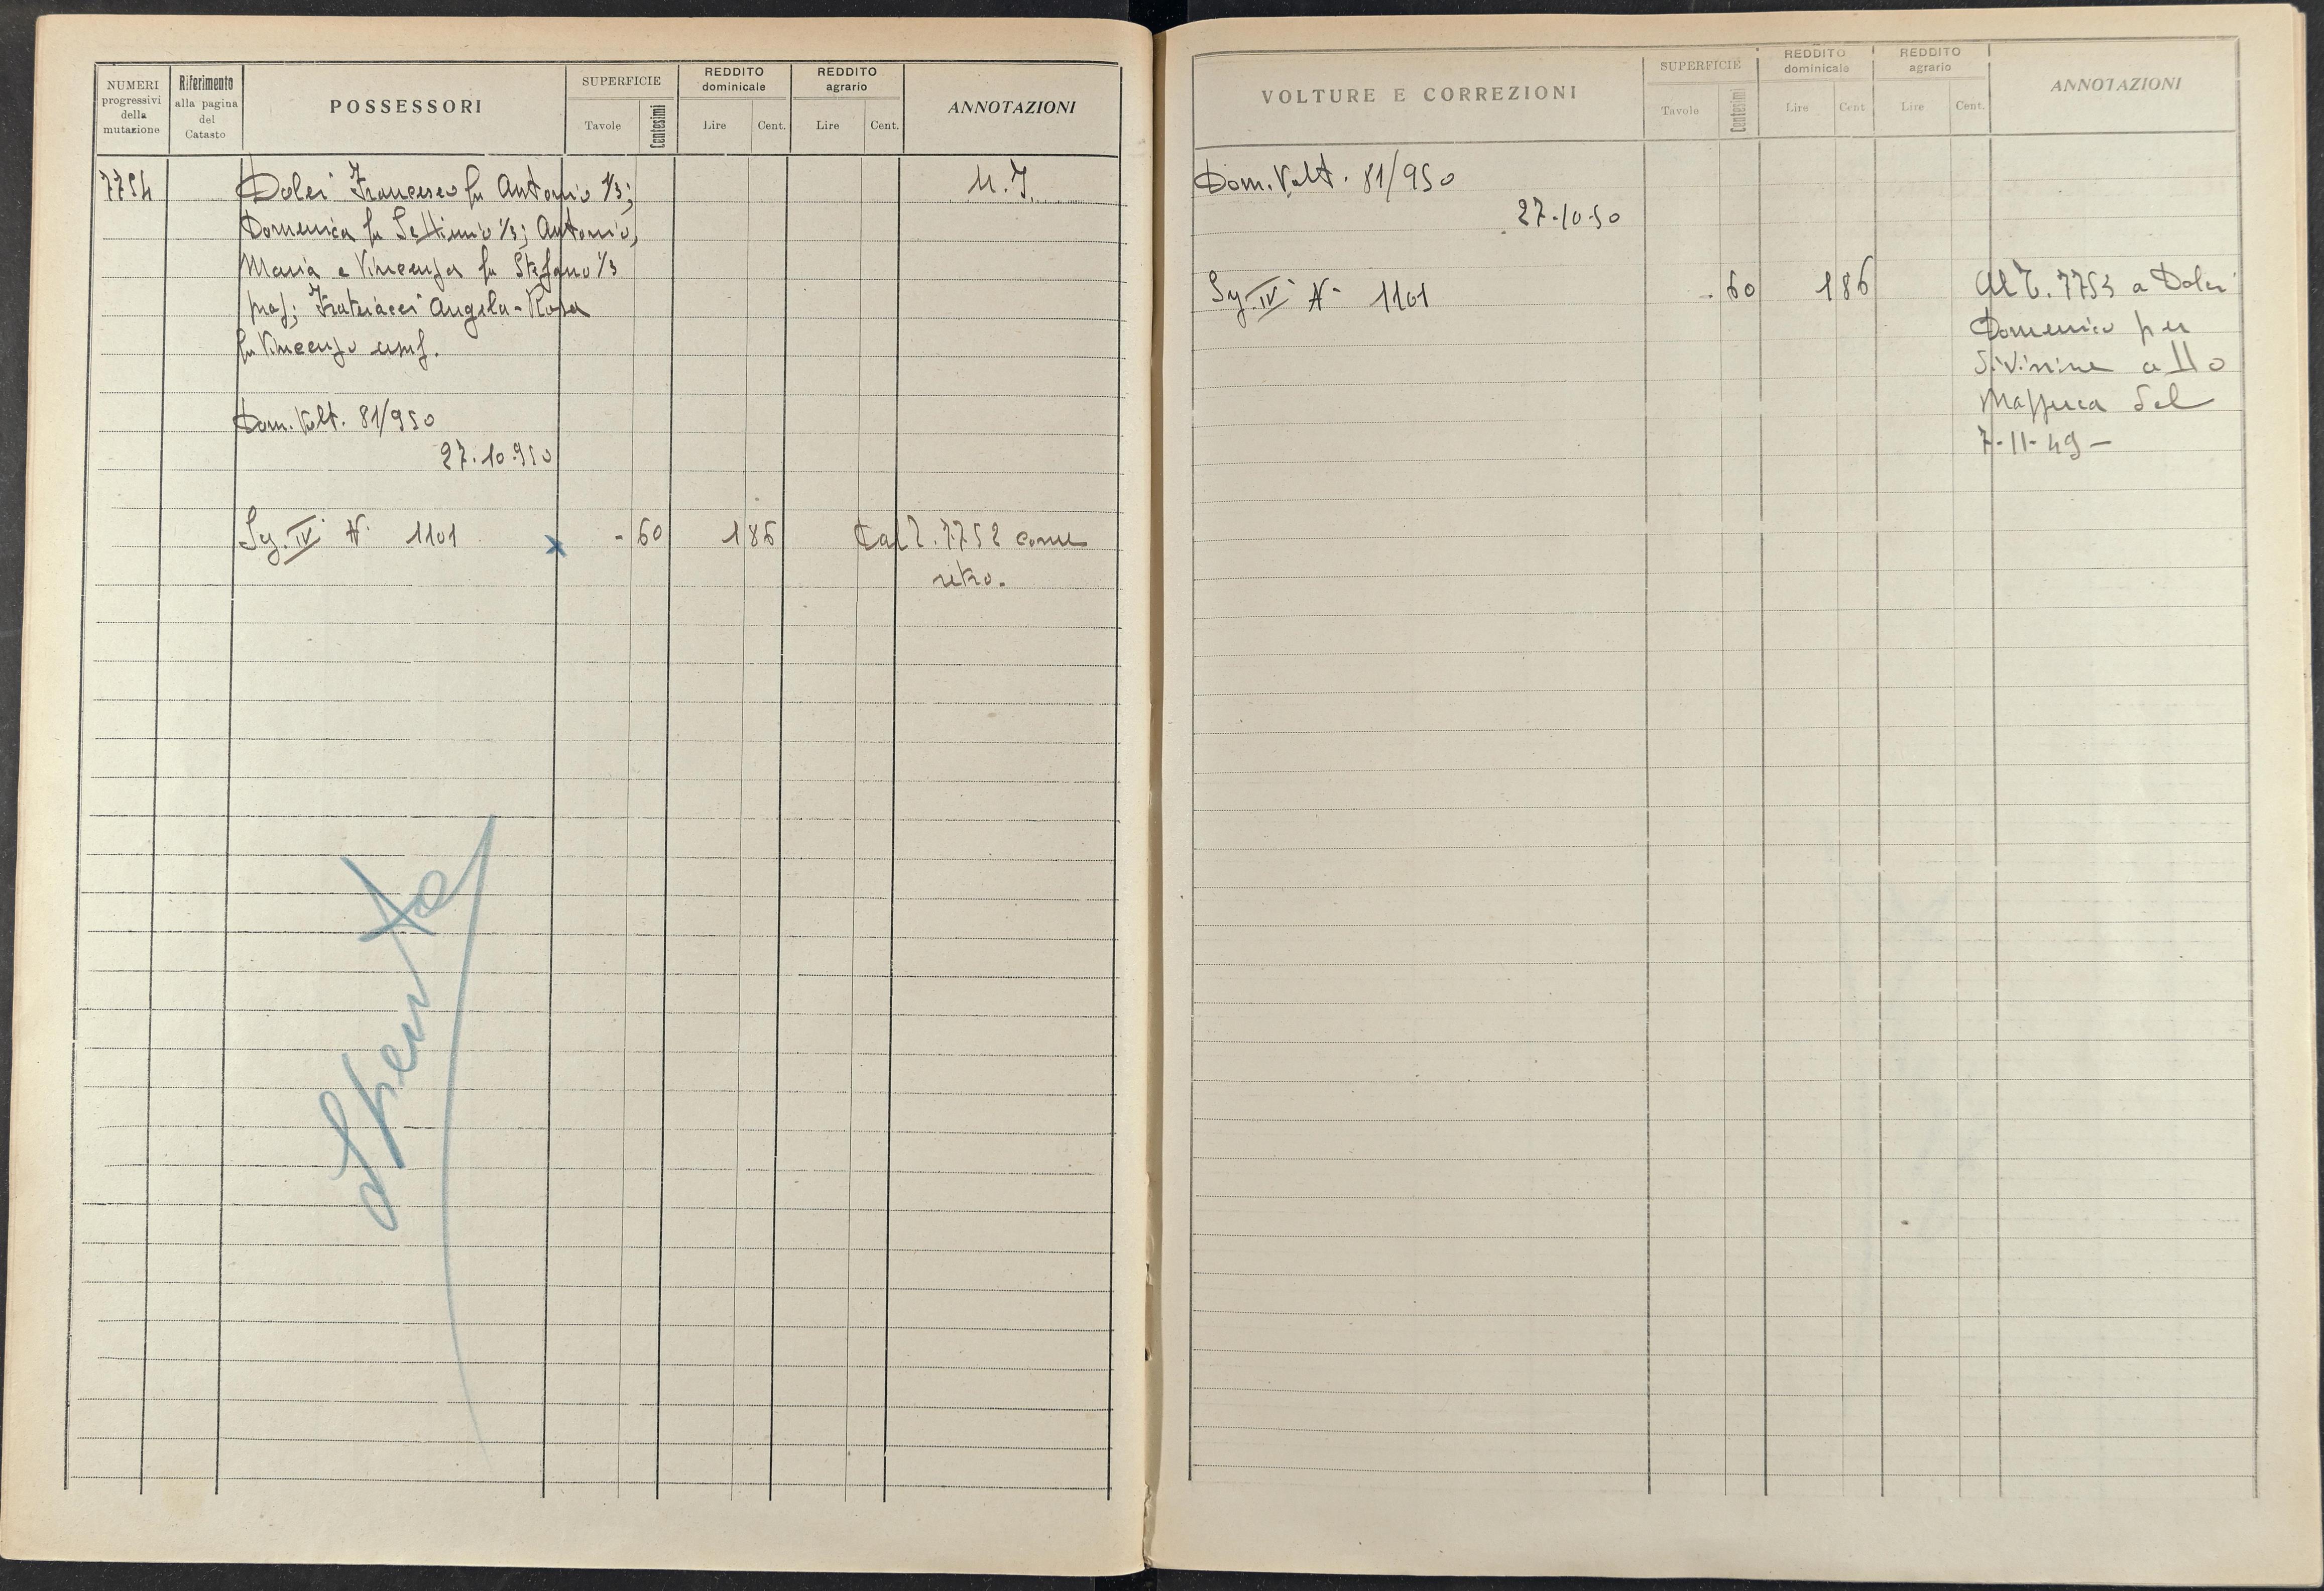 NUMERI progressivi della mutazione
Riferimento alla pagina del Catasto
POSSESSORI
SUPERFICIE
Tavole
Centesimi
REDDITO dominicale
Lire
Cent.
REDDITO agrario
Lire
Cent.
ANNOTAZIONI
7754
Dolci Francesco fu Antonio 1/3;
M.I.
Domenica fu Settimio 1/3; Antonio,
Maria e Vincenza fu Stefano 1/3
Frateiacci Angela-Rosa
fu Vincenzo usuf.
Dom. Volt. 81/950
27.10.950
Sez. IV N. 1101
x
- 60
1 86
Dal T. 7752 come
retro.
Spenta
VOLTURE E CORREZIONI
SUPERFICIE
Tavole
Centesimi
REDDITO dominicale
Lire
Cent
REDDITO agrario
Lire
Cent.
ANNOTAZIONI
Dom. Volt. 81/950
27-10-50
Sez. IV N. 1101
- 60
1 86
Al T. 7753 a Dolci
Domenico per
divisione atto
del
7-11-49 –